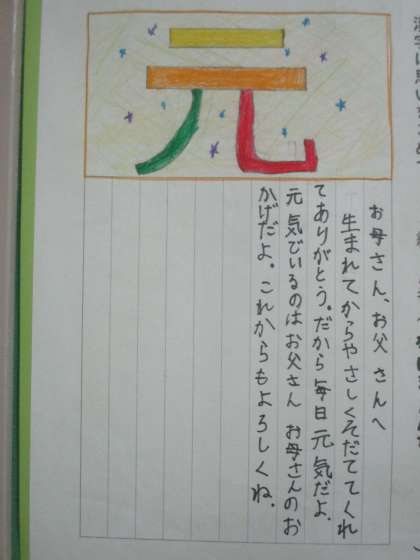 元
お母さん、お父さんへ
生まれてからやさしくそだててくれ
てありがとう。だから毎日元気だよ。
元気でいるのはお父さん お母さんのお
かげだよ。これからもよろしくね。